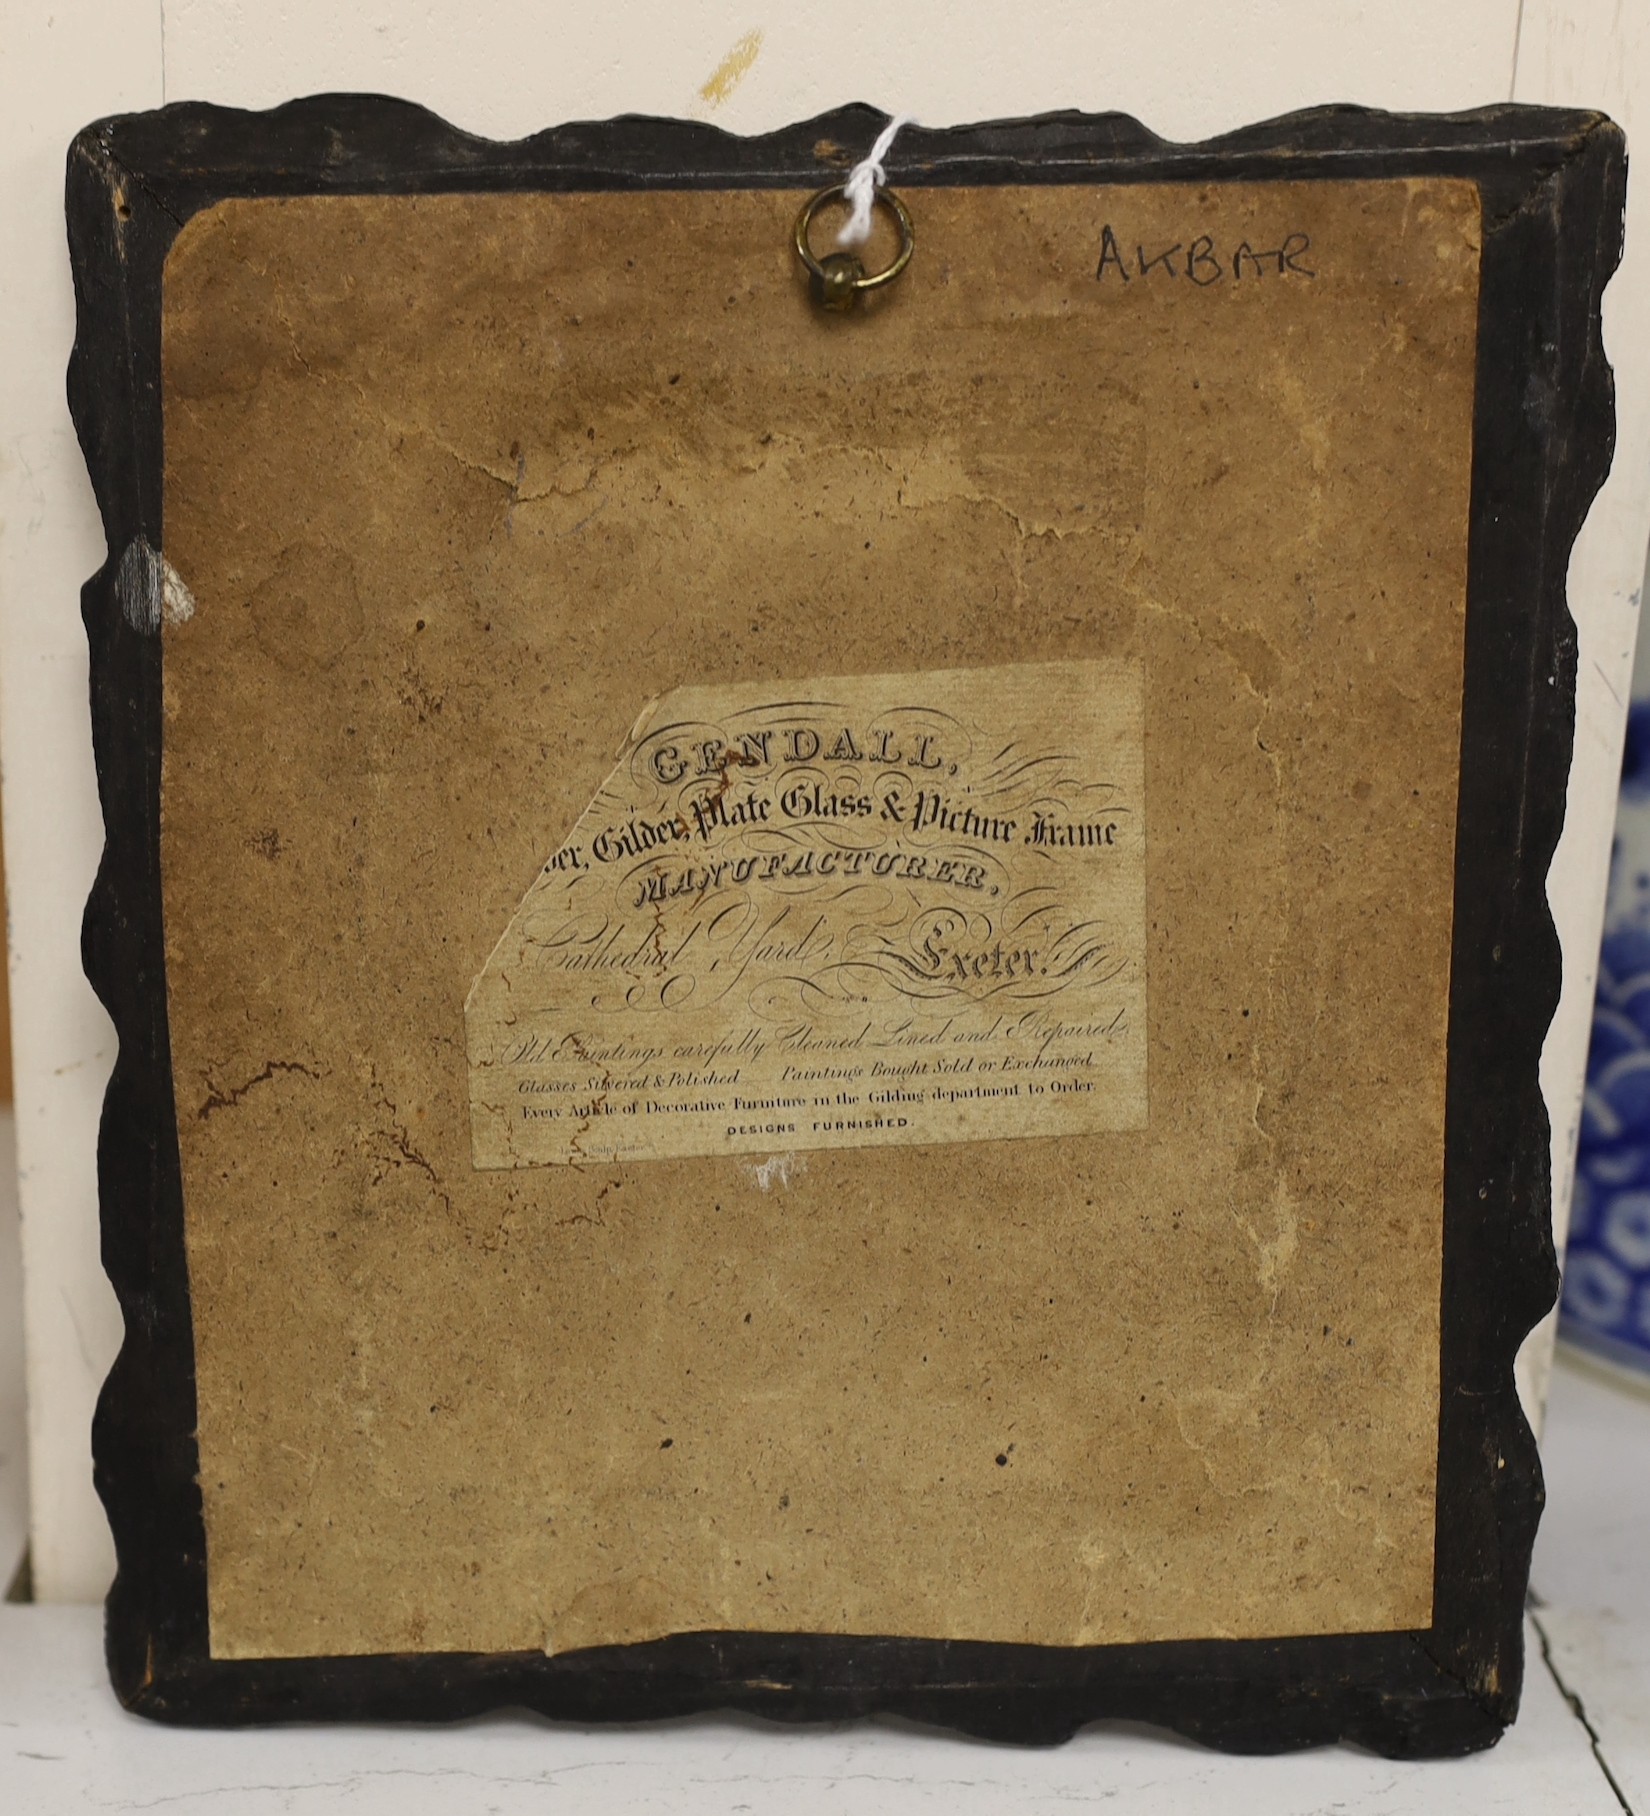 AKBAR
GENDALL,
er, Gilder, Plate Glass & Picture Frame
MANUFACTURER,
Cathedral Yard, Exeter.
Old Paintings carefully Cleaned Lined and Repaired.
Glasses Silvered & Polished Paintings Bought Sold or Exchanged
Every Article of Decorative Furniture in the Gilding department to Order.
DESIGNS FURNISHED.
Sculp. Exeter